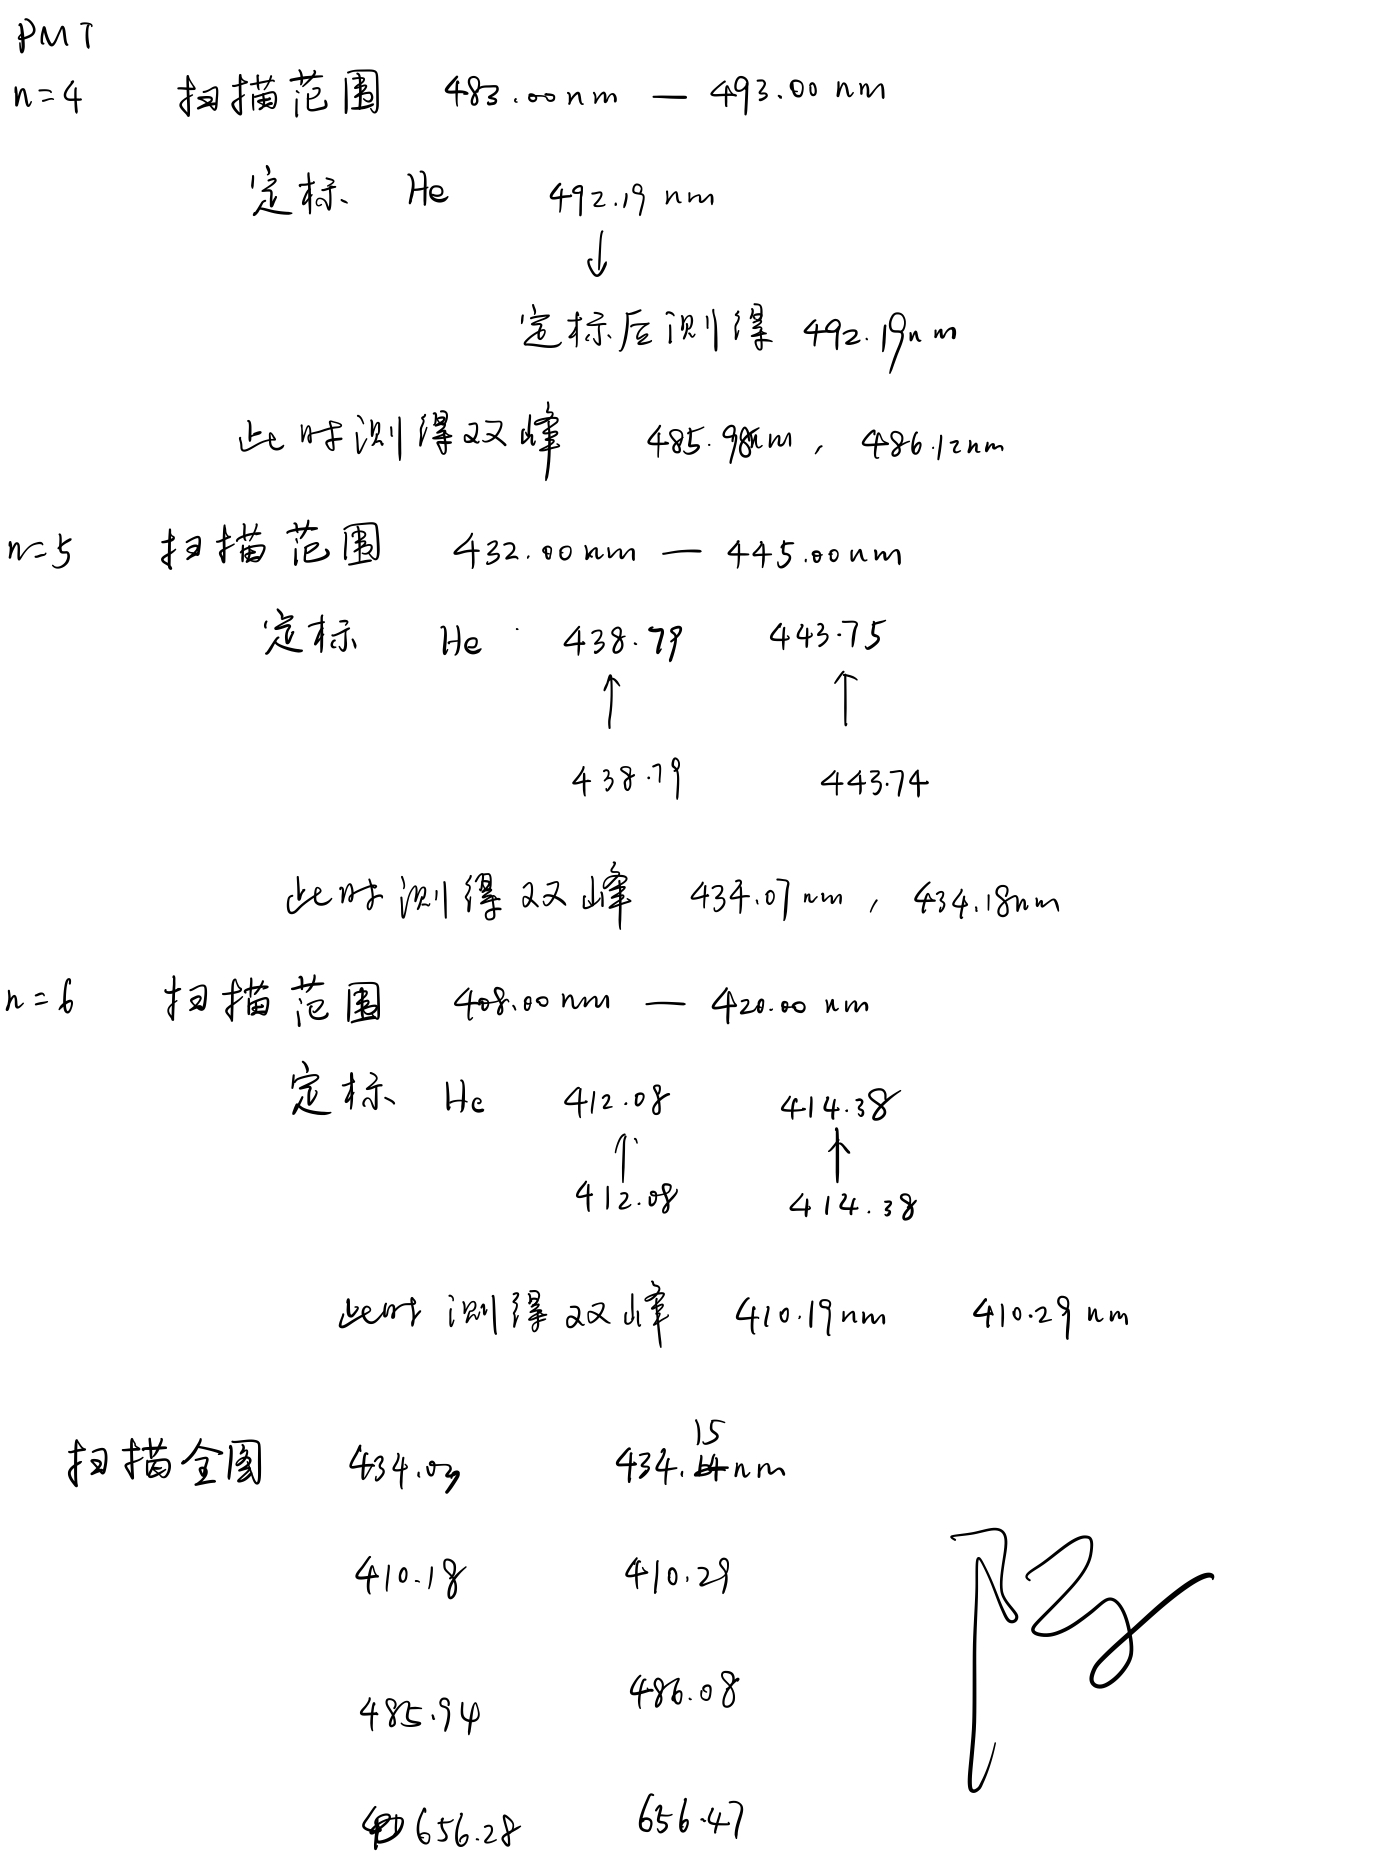 PMT
n=4 扫描范围 483.00nm — 493.00nm
定标 He 492.19 nm
↓
定标后测得 492.19nm
此时测得双峰 485.98nm, 486.12nm
n=5 扫描范围 432.00nm — 445.00nm
定标 He 438.79 443.75
↑ ↑
438.79 443.74
此时测得双峰 434.07nm, 434.18nm
n=6 扫描范围 408.00nm — 420.00nm
定标 He 412.08 414.38
↑ ↑
412.08 414.38
此时测得双峰 410.19nm 410.29nm
扫描全图 434.03 434.15nm
410.18 410.29
485.94 486.08
656.28 656.47